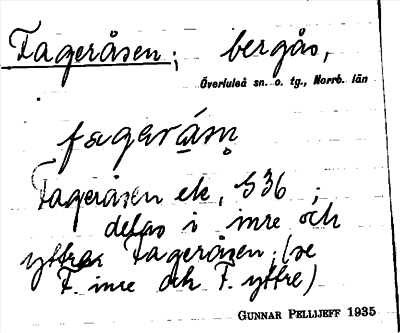 Fageråsen; bergås,
Överluleå sn. o. tg., Norrb. län
fagerásn̥
Fageråsen ek, S36;
delas i inre och
yttre Fageråsen; (se
F. inre och F. yttre)
GUNNAR PELLIJEFF 1935